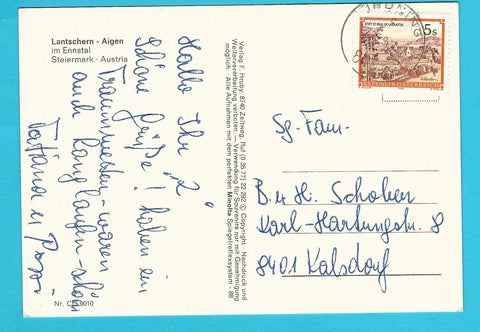 Lantschern - Aigen
im Ennstal
Steiermark - Austria
Hallo Ihr "2"
Schöne Grüße! haben ein
Traumwetter - waren
auch Langlaufen - schön
Tatjana u
Nr. 9010
Verlag F. Hruby, 8740 Zeltweg, Ruf (0 35 77) 22 292 © Copyright Nachdruck und
Weiterverarbeitung verboten. — Verwendung für Souvenirs nur mit Genehmigung
möglich - Alle Aufnahmen mit dem perfekten Minolta Spiegelreflexsystem - 88
5s
REPUBLIK ÖSTERREICH
IRDNING
Sg. Fam.
B. u H. Schoben
Karl-Hartungstr. 8
8401 Kalsdorf